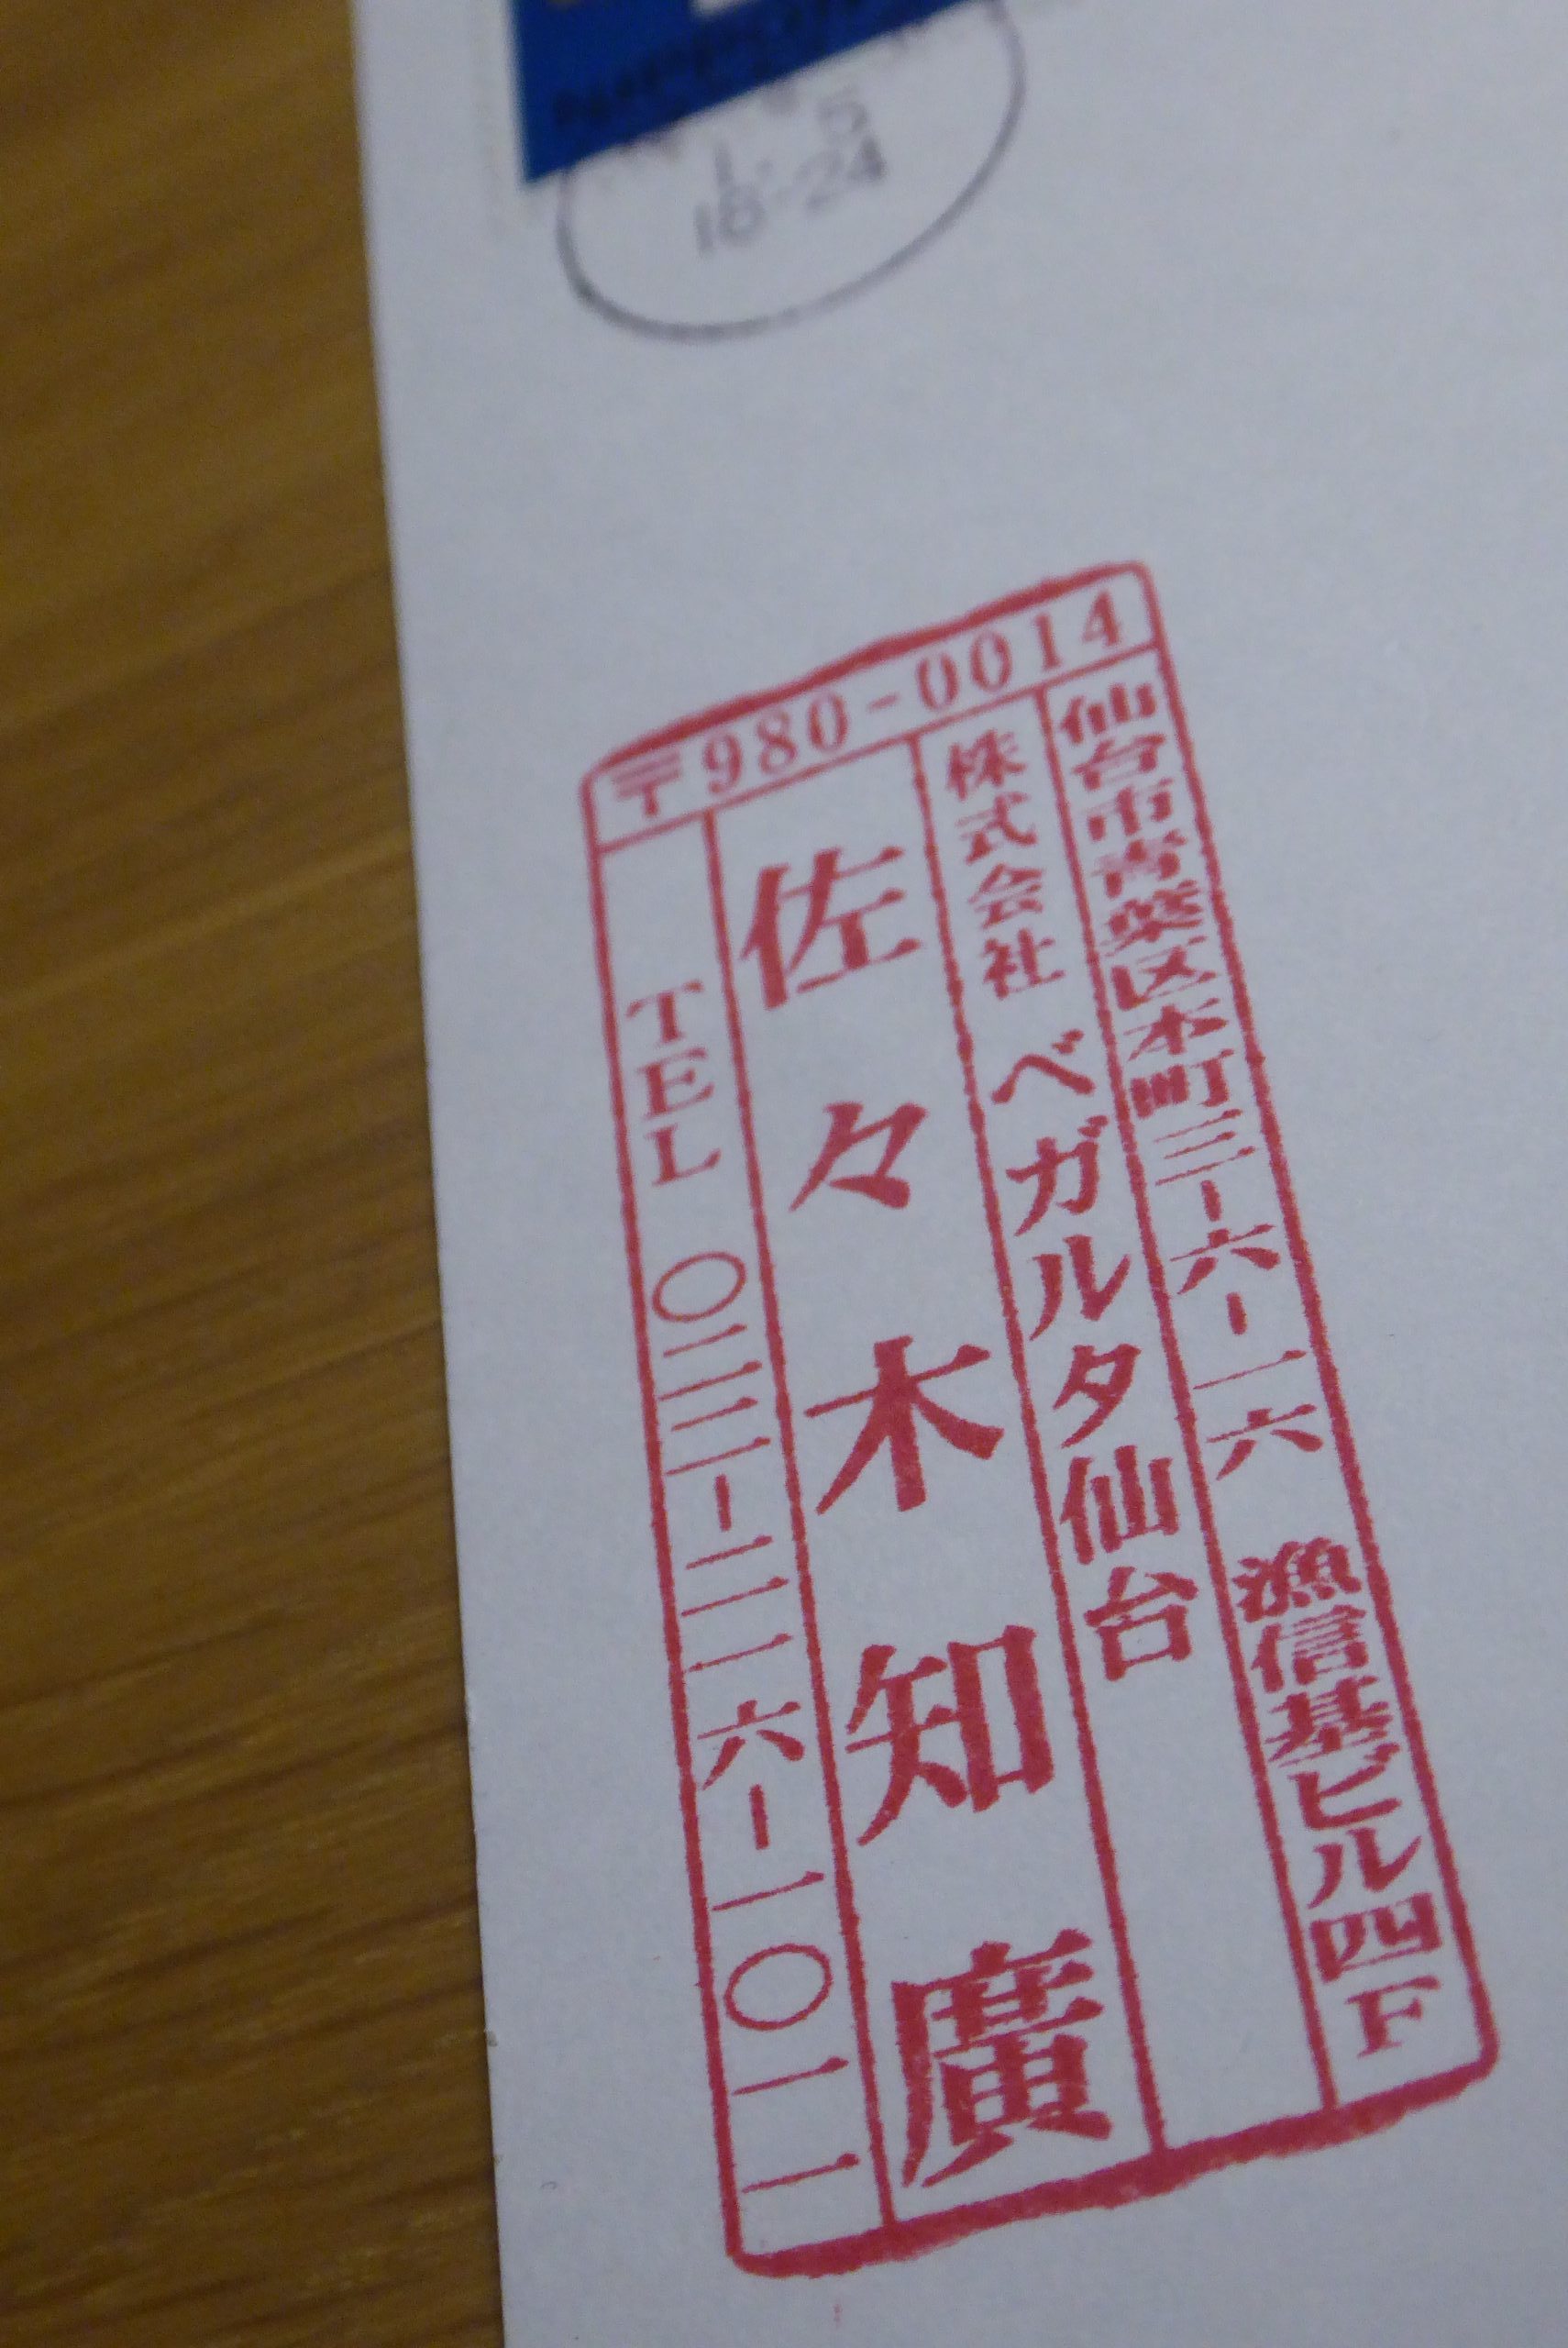 NIPPON
18-24
〒980-0014
仙台市青葉区本町三-六-一六 漁信基ビル四F
株式会社 ベガルタ仙台
佐々木知廣
TEL 〇二二-二一六-一〇一一